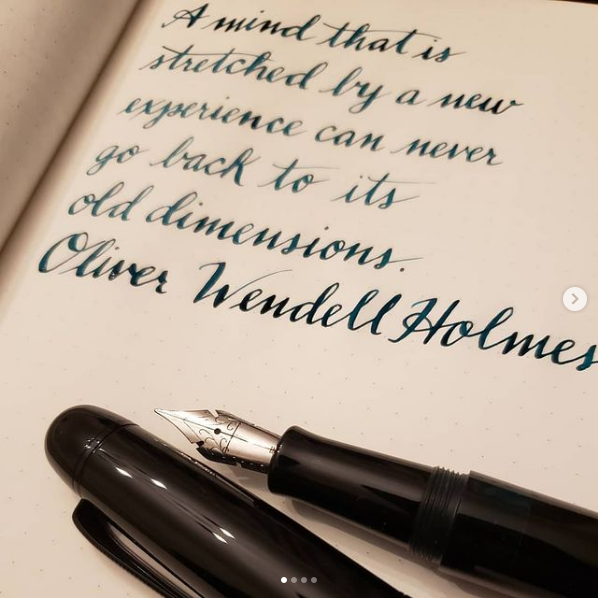 A mind that is
stretched by a new
experience can never
go back to its
old dimensions.
Oliver Wendell Holmes